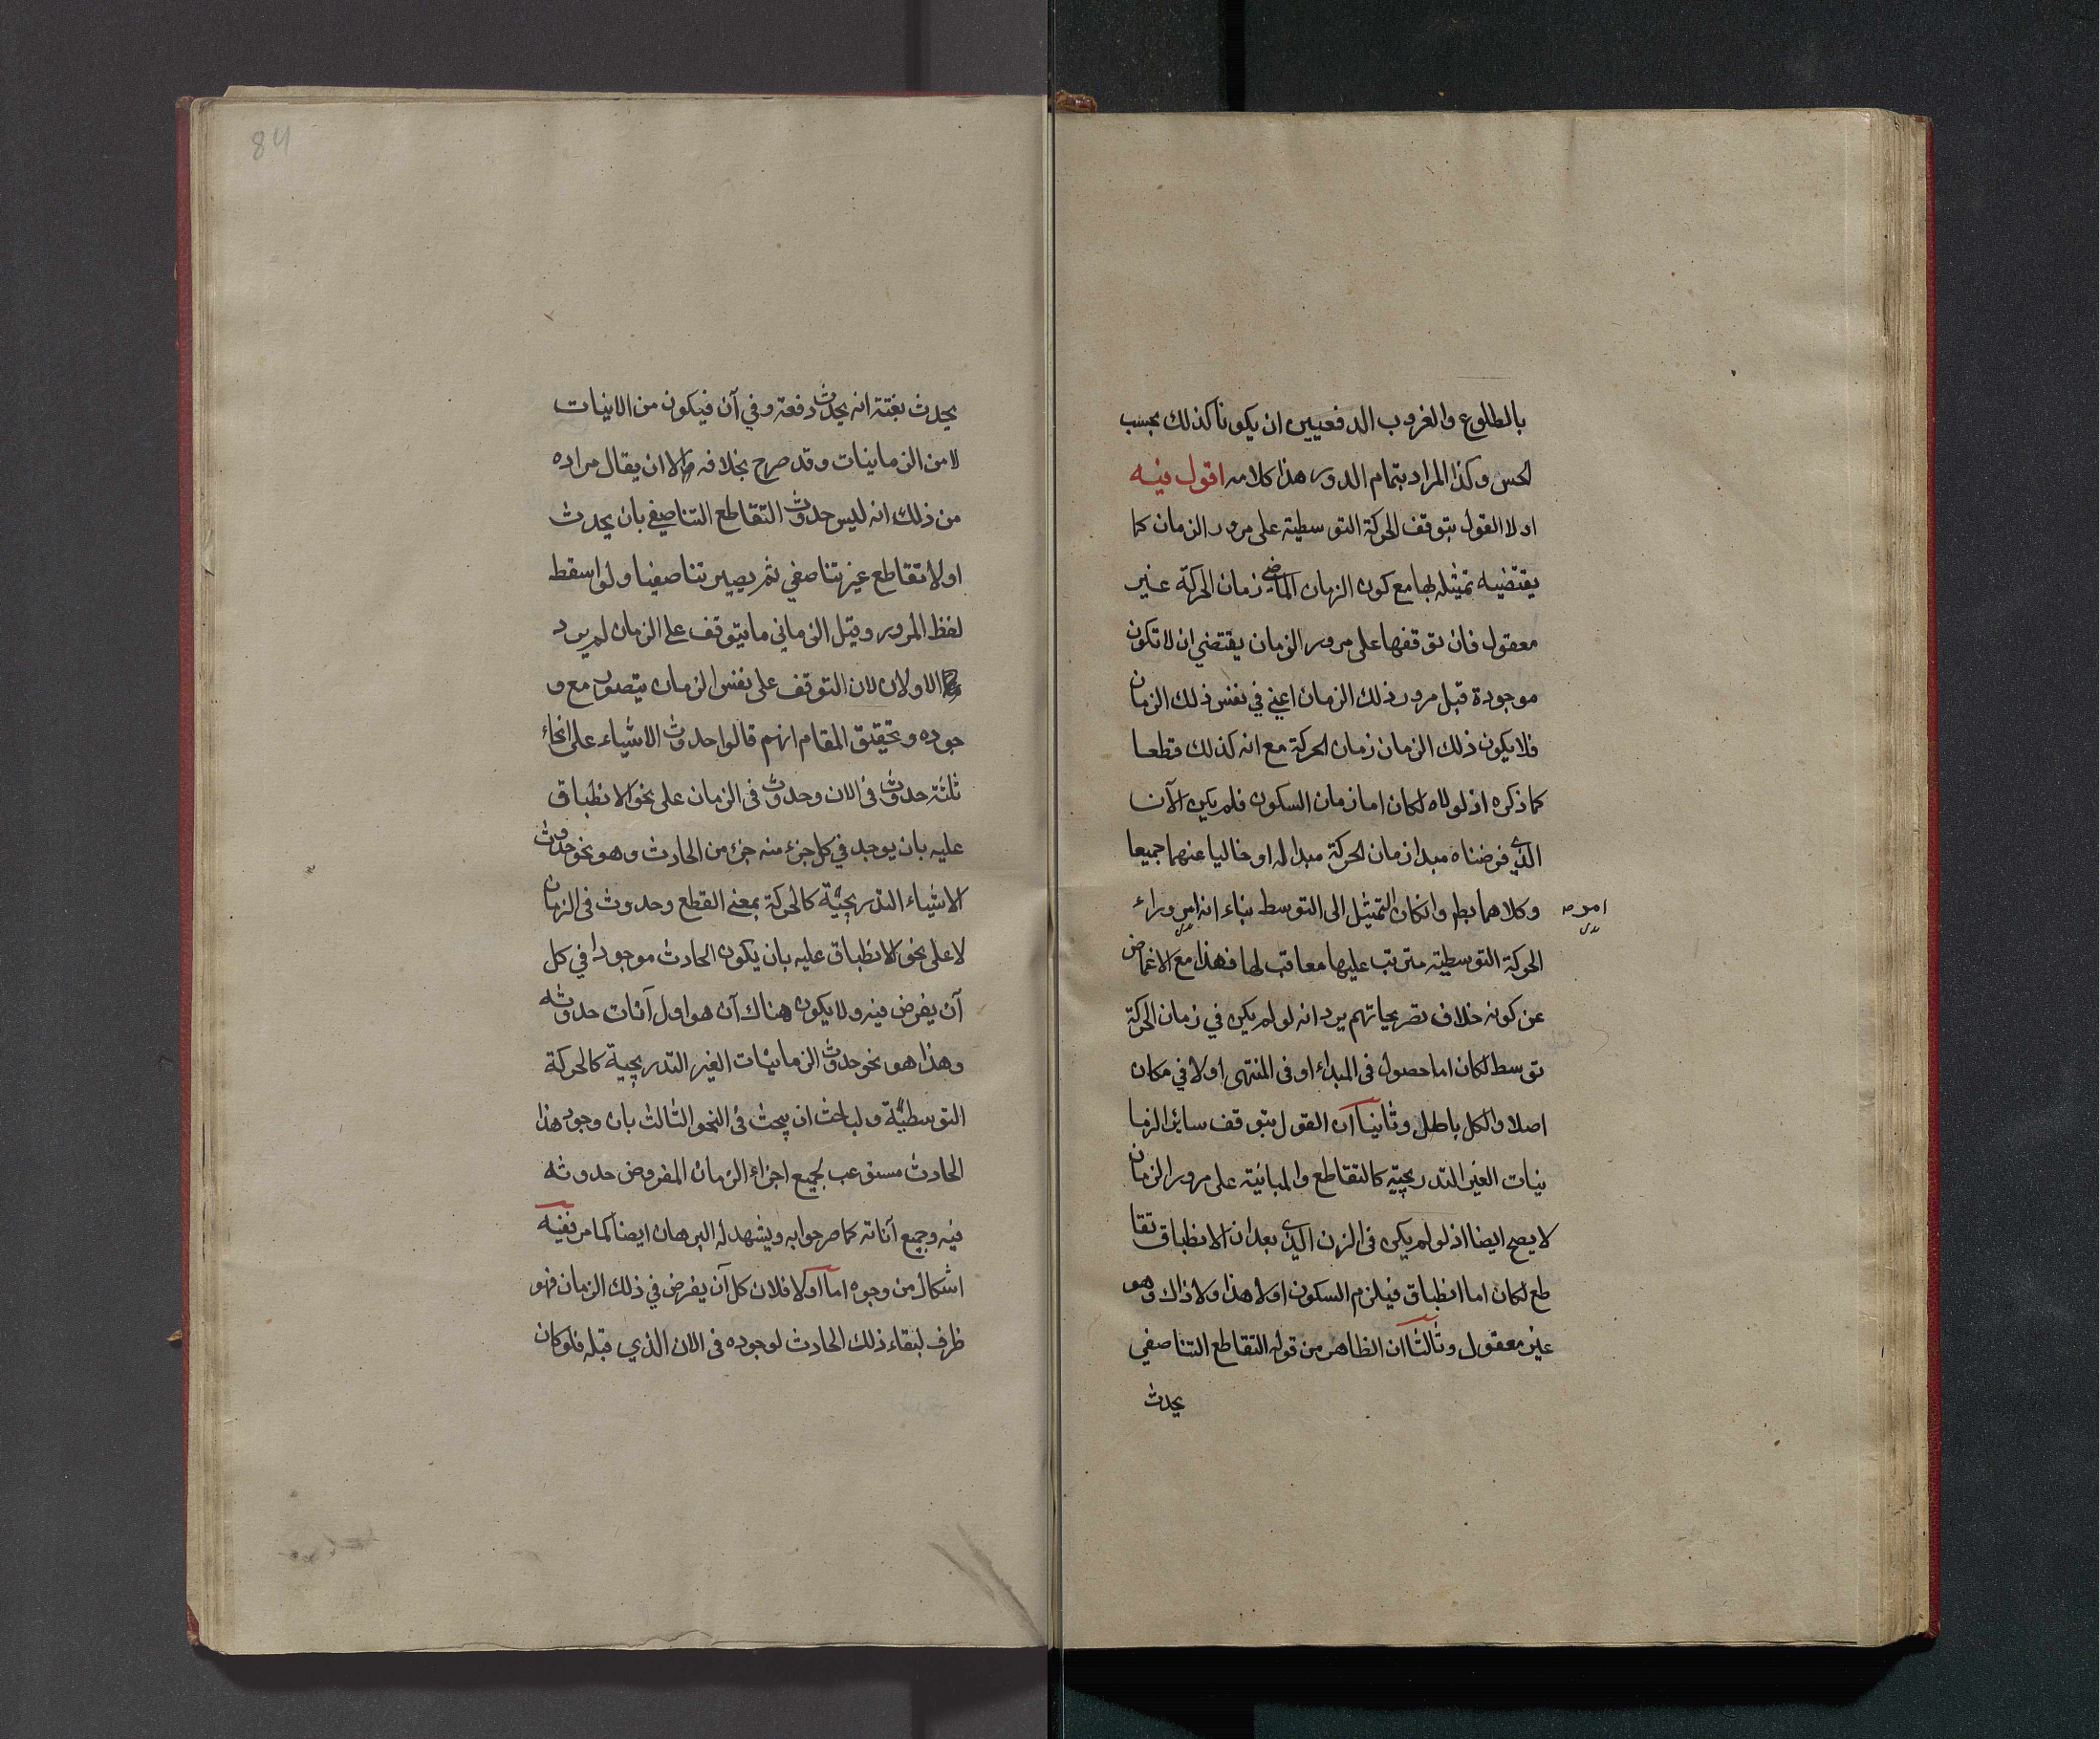 بالطلوع والغروب الدفعيين ان يكونا كذلك بحسب
الحس وكذا المراد بتمام الدور هذا كلامه اقول فيه
اولا القول بتوقف الحركة التوسطية على مرور الزمان كما
يقتضيه تمثيله لها مع كون الزمان الماضي زمان الحركة غير
معقول فان توقفها على مرور الزمان يقتضي ان لا تكون
موجودة قبل مرور ذلك الزمان اعني في نفس ذلك الزمان
فلا يكون ذلك الزمان زمان الحركة مع انه كذلك قطعا
كما ذكره اذ لولاه لكان اما زمان السكون فلم يكن الآن
الذي فرضناه مبدا زمان الحركة مبدا له او خاليا عنهما جميعا
وكلاهما بط وانكان التمثيل الى التوسط بناء انه امر وراء
امر
الحركة التوسطية مترتب عليها معاقب لها فهذا مع الاغماض
عن كونه خلاف تصريحاتهم يرد انه لو لم يكن في زمان الحركة
توسط لكان اما حصول في المبداء او في المنتهى او لا في مكان
اصلا والكل باطل وثانيا ان القول بتوقف سائر الزما
نيات الغير التدريجية كالتقاطع والمباينة على مرور الزمان
لا يصح ايضا اذ لو لم يكن في الزمن الذي بعد ان الانطباق تقا
طع لكان اما انطباق فيلزم السكون او لا هذا ولا ذاك وهو
غير معقول وثالثا ان الظاهر من قوله التقاطع التناصفي
يحدث
84
يحدث بغتة انه يحدث دفعة وفي آن فيكون من الانيات
لا من الزمانيات وقد صرح بخلافه الا ان يقال مراده
من ذلك انه ليس حدوث التقاطع التناصفي بان يحدث
اولا تقاطع غير تناصفي ثم يصير تناصفيا ولو اسقط
لفظ المرور وقيل الزماني ما يتوقف على الزمان لم يرد
الاولان لان التوقف على نفس الزمان يتصور مع و
جوده وتحقيق المقام انهم قالوا حدوث الاشياء على انحاء
ثلثة حدوث في الان وحدوث في الزمان على نحو الانطباق
عليه بان يوجد في كل جزء منه جزء من الحادث وهو نحو حدوث
الاشياء التدريجية كالحركة بمعنى القطع وحدوث في الزمان
لا على نحو الانطباق عليه بان يكون الحادث موجودا في كل
آن يفرض فيه ولا يكون هناك آن هو اول آنات حدوثه
وهذا هو نحو حدوث الزمانيات الغير التدريجية كالحركة
التوسطية ولباحث ان يبحث في النحو الثالث بان وجود هذا
الحادث مستوعب لجميع اجزاء الزمان المفروض حدوثه
فيه وجميع آناته كما صرحوا به ويشهد له البرهان ايضا كما مر ففيه
اشكال من وجوه اما اولا فلان كل آن يفرض في ذلك الزمان فهو
ظرف لبقاء ذلك الحادث لوجوده في الان الذي قبله فلو كان